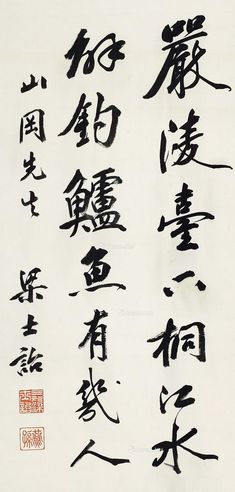 嚴陵臺下桐江水
解釣鱸魚有幾人
山岡先生
梁士詒